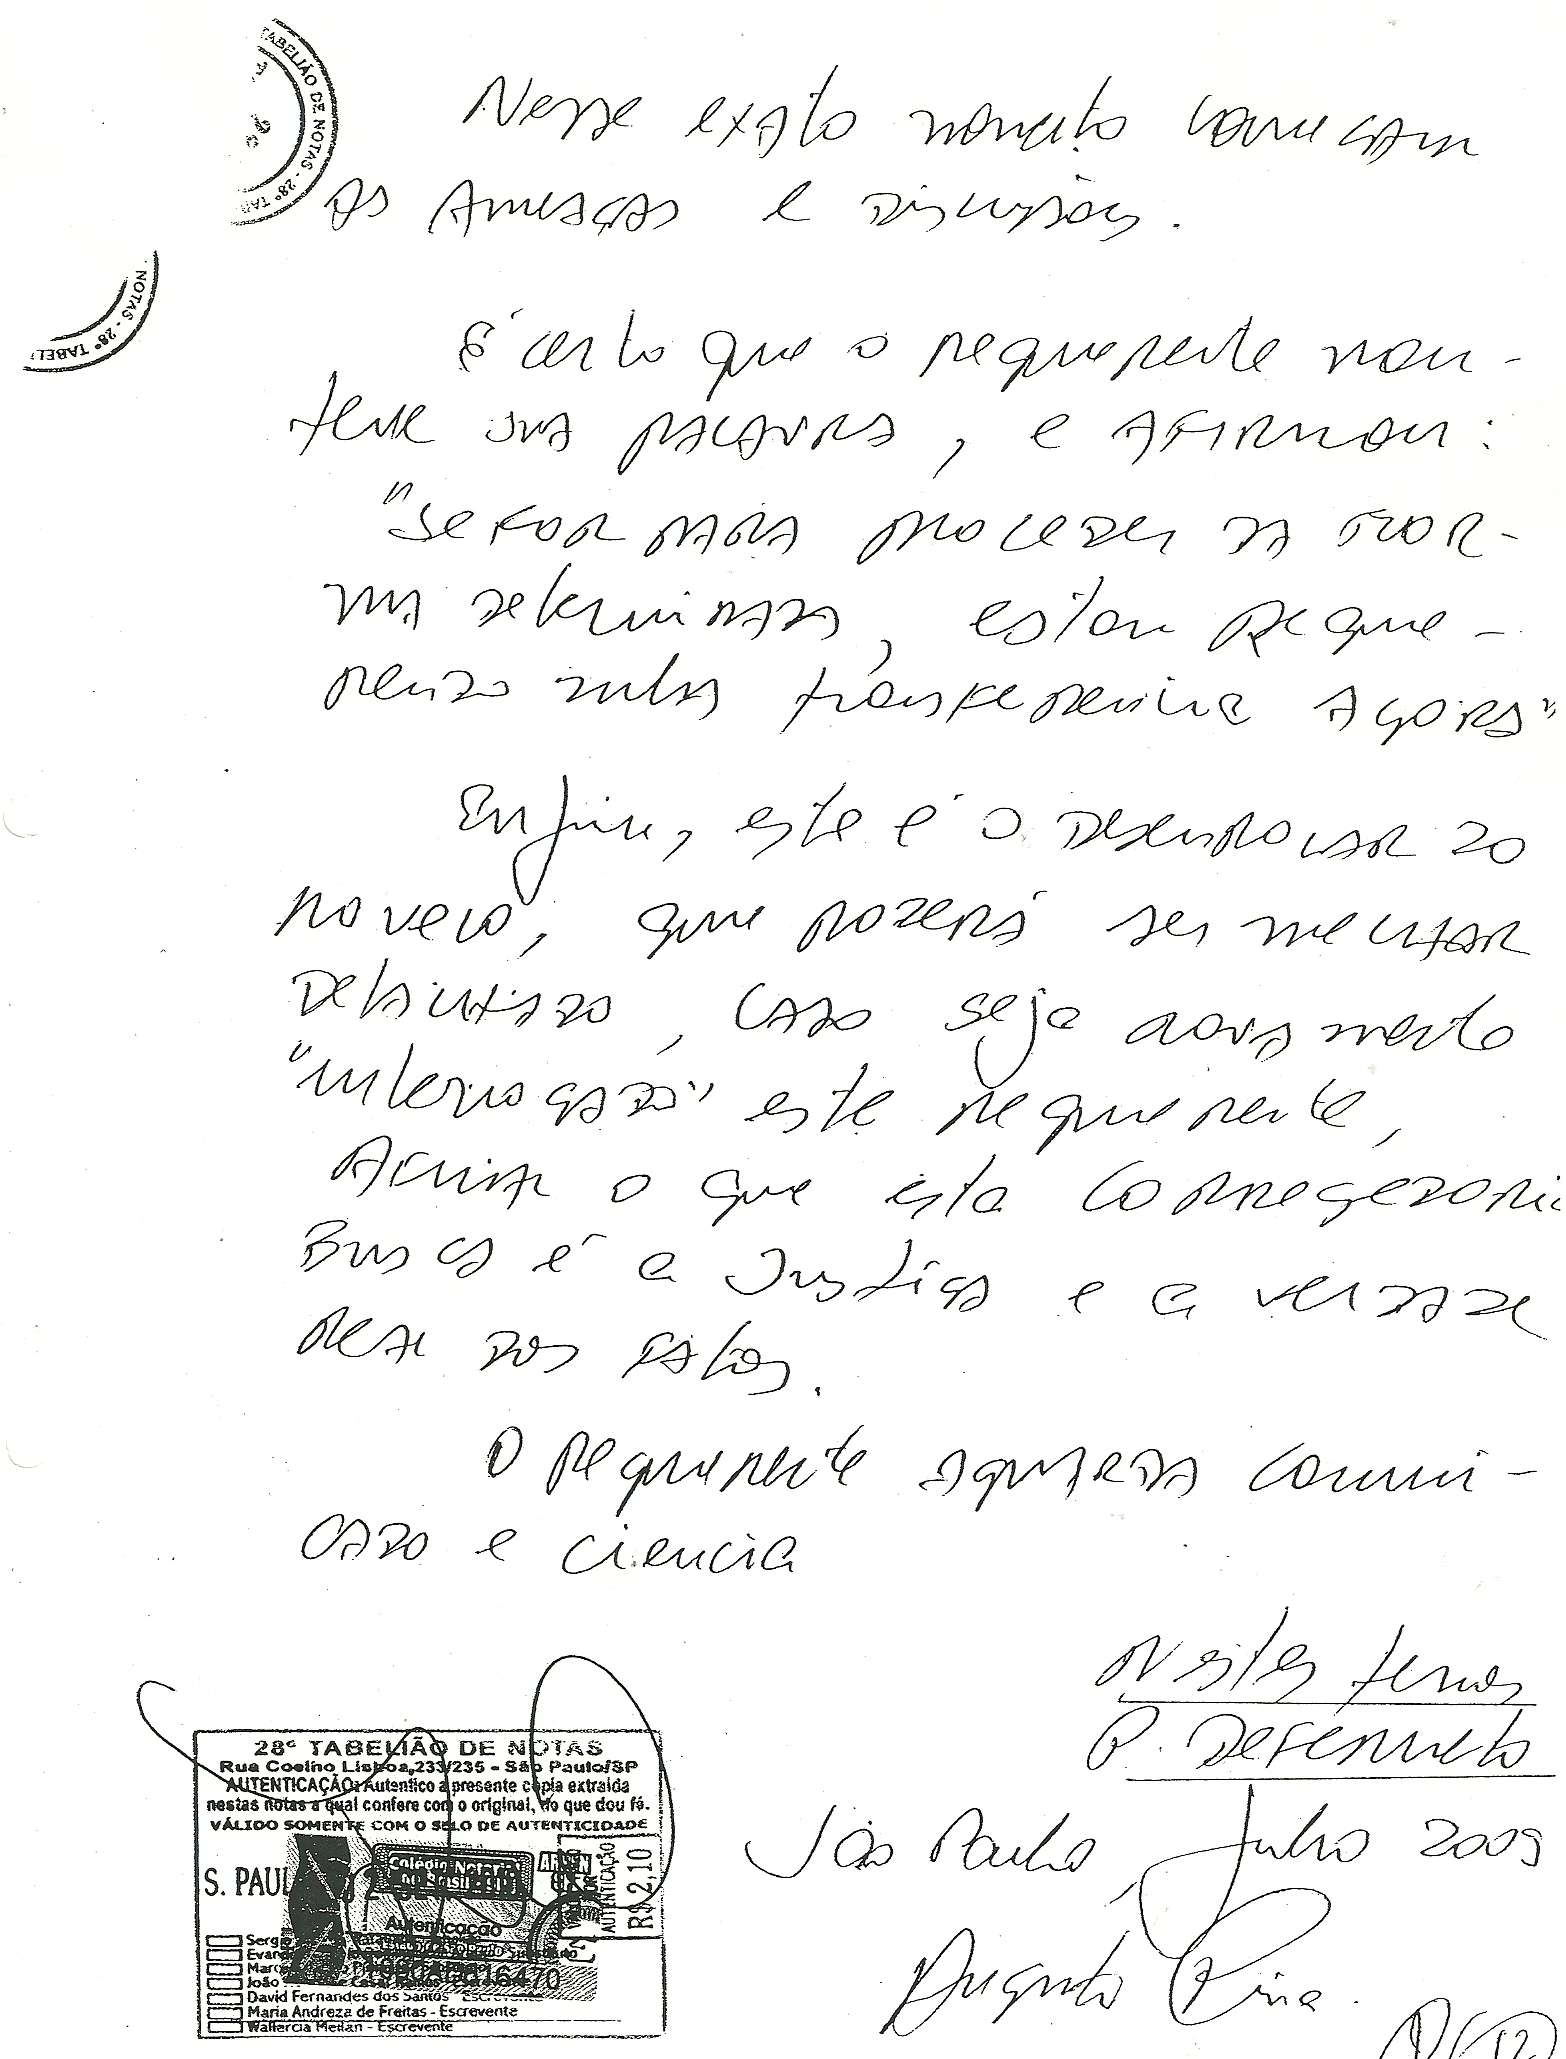 TABELIÃO DE NOTAS - 28º TAB
NOTAS - 28º TABEL
Nesse exato momento começam
as ameaças e discussões.
É certo que o requerente man-
teve sua palavra, e afirmou:
"se for para proceder da for-
ma determinada, estou reque-
rendo minha transferencia agora"
Enfim, este é o desenrolar do
novelo, que poderá ser melhor
detalhado, caso seja novamente
"interrogado" este requerente,
Afinal o que esta corregedori
Busca é a Justiça e a verdade
real dos fatos.
O requerente aguarda comuni-
cado e ciencia
Nestes termos
P. Deferimento
São Paulo, Julho 2009
Augusto Pina
28º TABELIÃO DE NOTAS
Rua Coelho Lisboa,233/235 - São Paulo/SP
AUTENTICAÇÃO: Autentico a presente cópia extraída
nestas notas a qual confere com o original, do que dou fé.
VÁLIDO SOMENTE COM O SELO DE AUTENTICIDADE
S. PAUL
Colégio Notarial
do Brasil - SP
AUTENTICAÇÃO
R$ 2,10
Autenticação
Sergi
Evand
Marc
João
David Fernandes dos Santos - Escrevente
Maria Andreza de Freitas - Escrevente
Wallercia Meilan - Escrevente